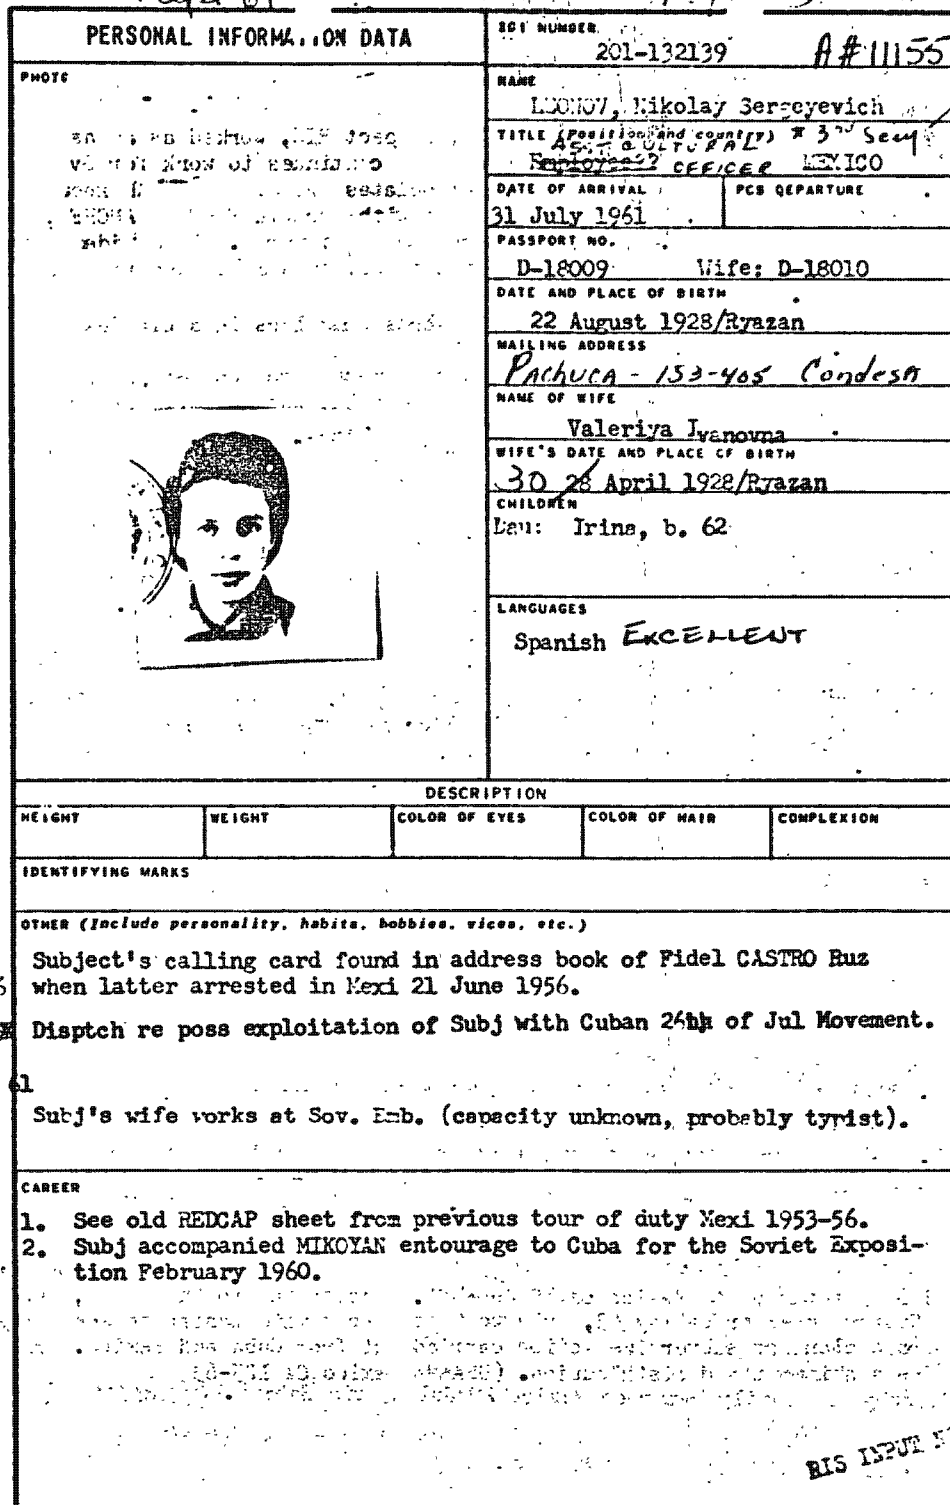 PERSONAL INFORMA..ON DATA
PHOTO
201 NUMBER
201-132139 A#11155
NAME
LEONOV, Nikolay Sergeyevich
TITLE (Position and country) # 3rd Secy
ASST CULTURAL
Employee? OFFICER MEXICO
DATE OF ARRIVAL
31 July 1961
PCS DEPARTURE
PASSPORT NO.
D-18009 Wife: D-18010
DATE AND PLACE OF BIRTH
22 August 1928/Ryazan
MAILING ADDRESS
PACHUCA - 153-405 CondesA
NAME OF WIFE
Valeriya Ivanovna
WIFE'S DATE AND PLACE OF BIRTH
30 28 April 1928/Ryazan
CHILDREN
Dau: Irina, b. 62
LANGUAGES
Spanish EXCELLENT
DESCRIPTION
HEIGHT WEIGHT COLOR OF EYES COLOR OF HAIR COMPLEXION
IDENTIFYING MARKS
OTHER (Include personality, habits, hobbies, vices, etc.)
Subject's calling card found in address book of Fidel CASTRO Ruz
when latter arrested in Mexi 21 June 1956.
Disptch re poss exploitation of Subj with Cuban 26th of Jul Movement.
61
Subj's wife works at Sov. Emb. (capacity unknown, probably typist).
CAREER
1. See old REDCAP sheet from previous tour of duty Mexi 1953-56.
2. Subj accompanied MIKOYAN entourage to Cuba for the Soviet Exposi-
tion February 1960.
RIS INPUT